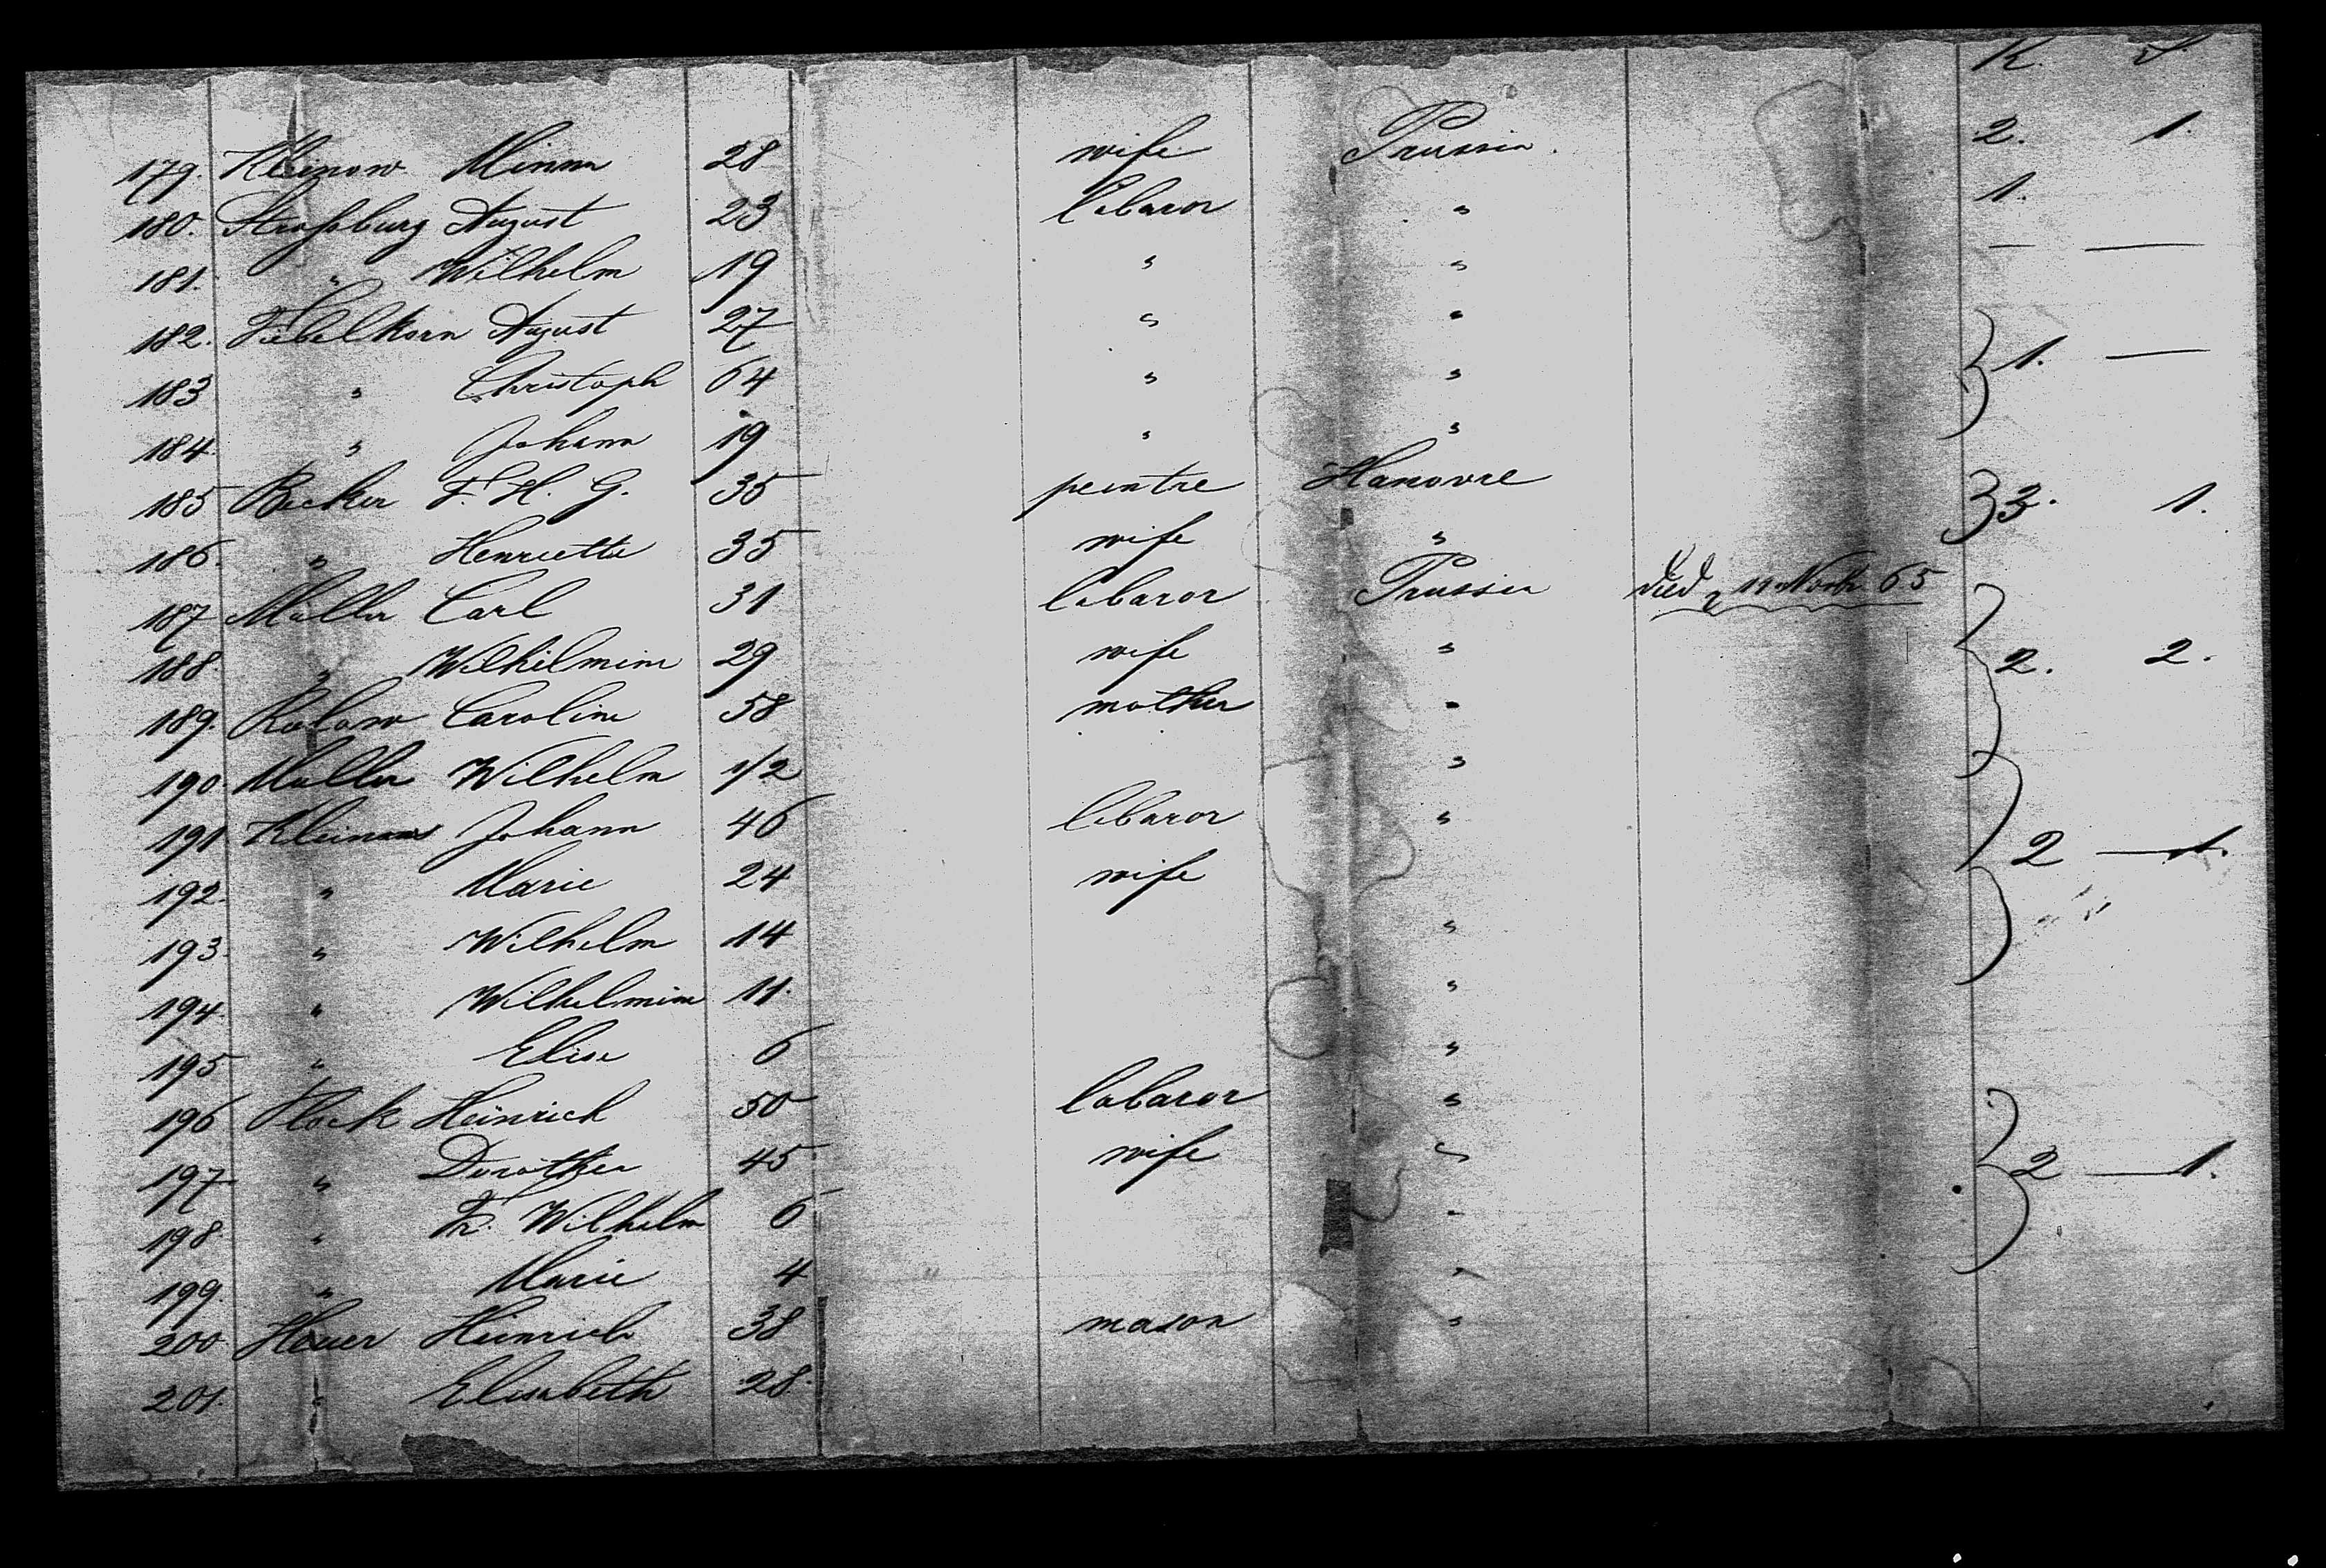 K. S.
179. Kleinow Minna 28 wife Prussia. 2. 1.
180. Straſsburg August 23 labaror " 1.
181. " Wilhelm 19 " " — —
182. Fiebelkorn August 27 " "
183 " Christoph 64 " " 1. —
184. " Johann 19 " "
185 Becker F. H. G. 35 peintre Hanovre 3. 1.
186. " Henriette 35 wife "
187 Muller Carl 31 labaror Prussia died 65
188. " Wilhelmine 29 wife " 2. 2.
189. Caroline 58 mother "
190 Muller Wilhelm 1/2 "
191 Johann 46 labaror "
192. " Marie 24 wife 2 — 1.
193. " Wilhelm 14 "
194. " Wilhelmine 11. "
195 " Elise 6 "
196 Plock Heinrich 50 labaror "
197 " Dorothea 45 wife " 2 — 1.
198 " Fr. Wilhelm 6 "
199. " Marie 4 "
200. Heinrich 38 mason "
201. " Elisabeth 28.